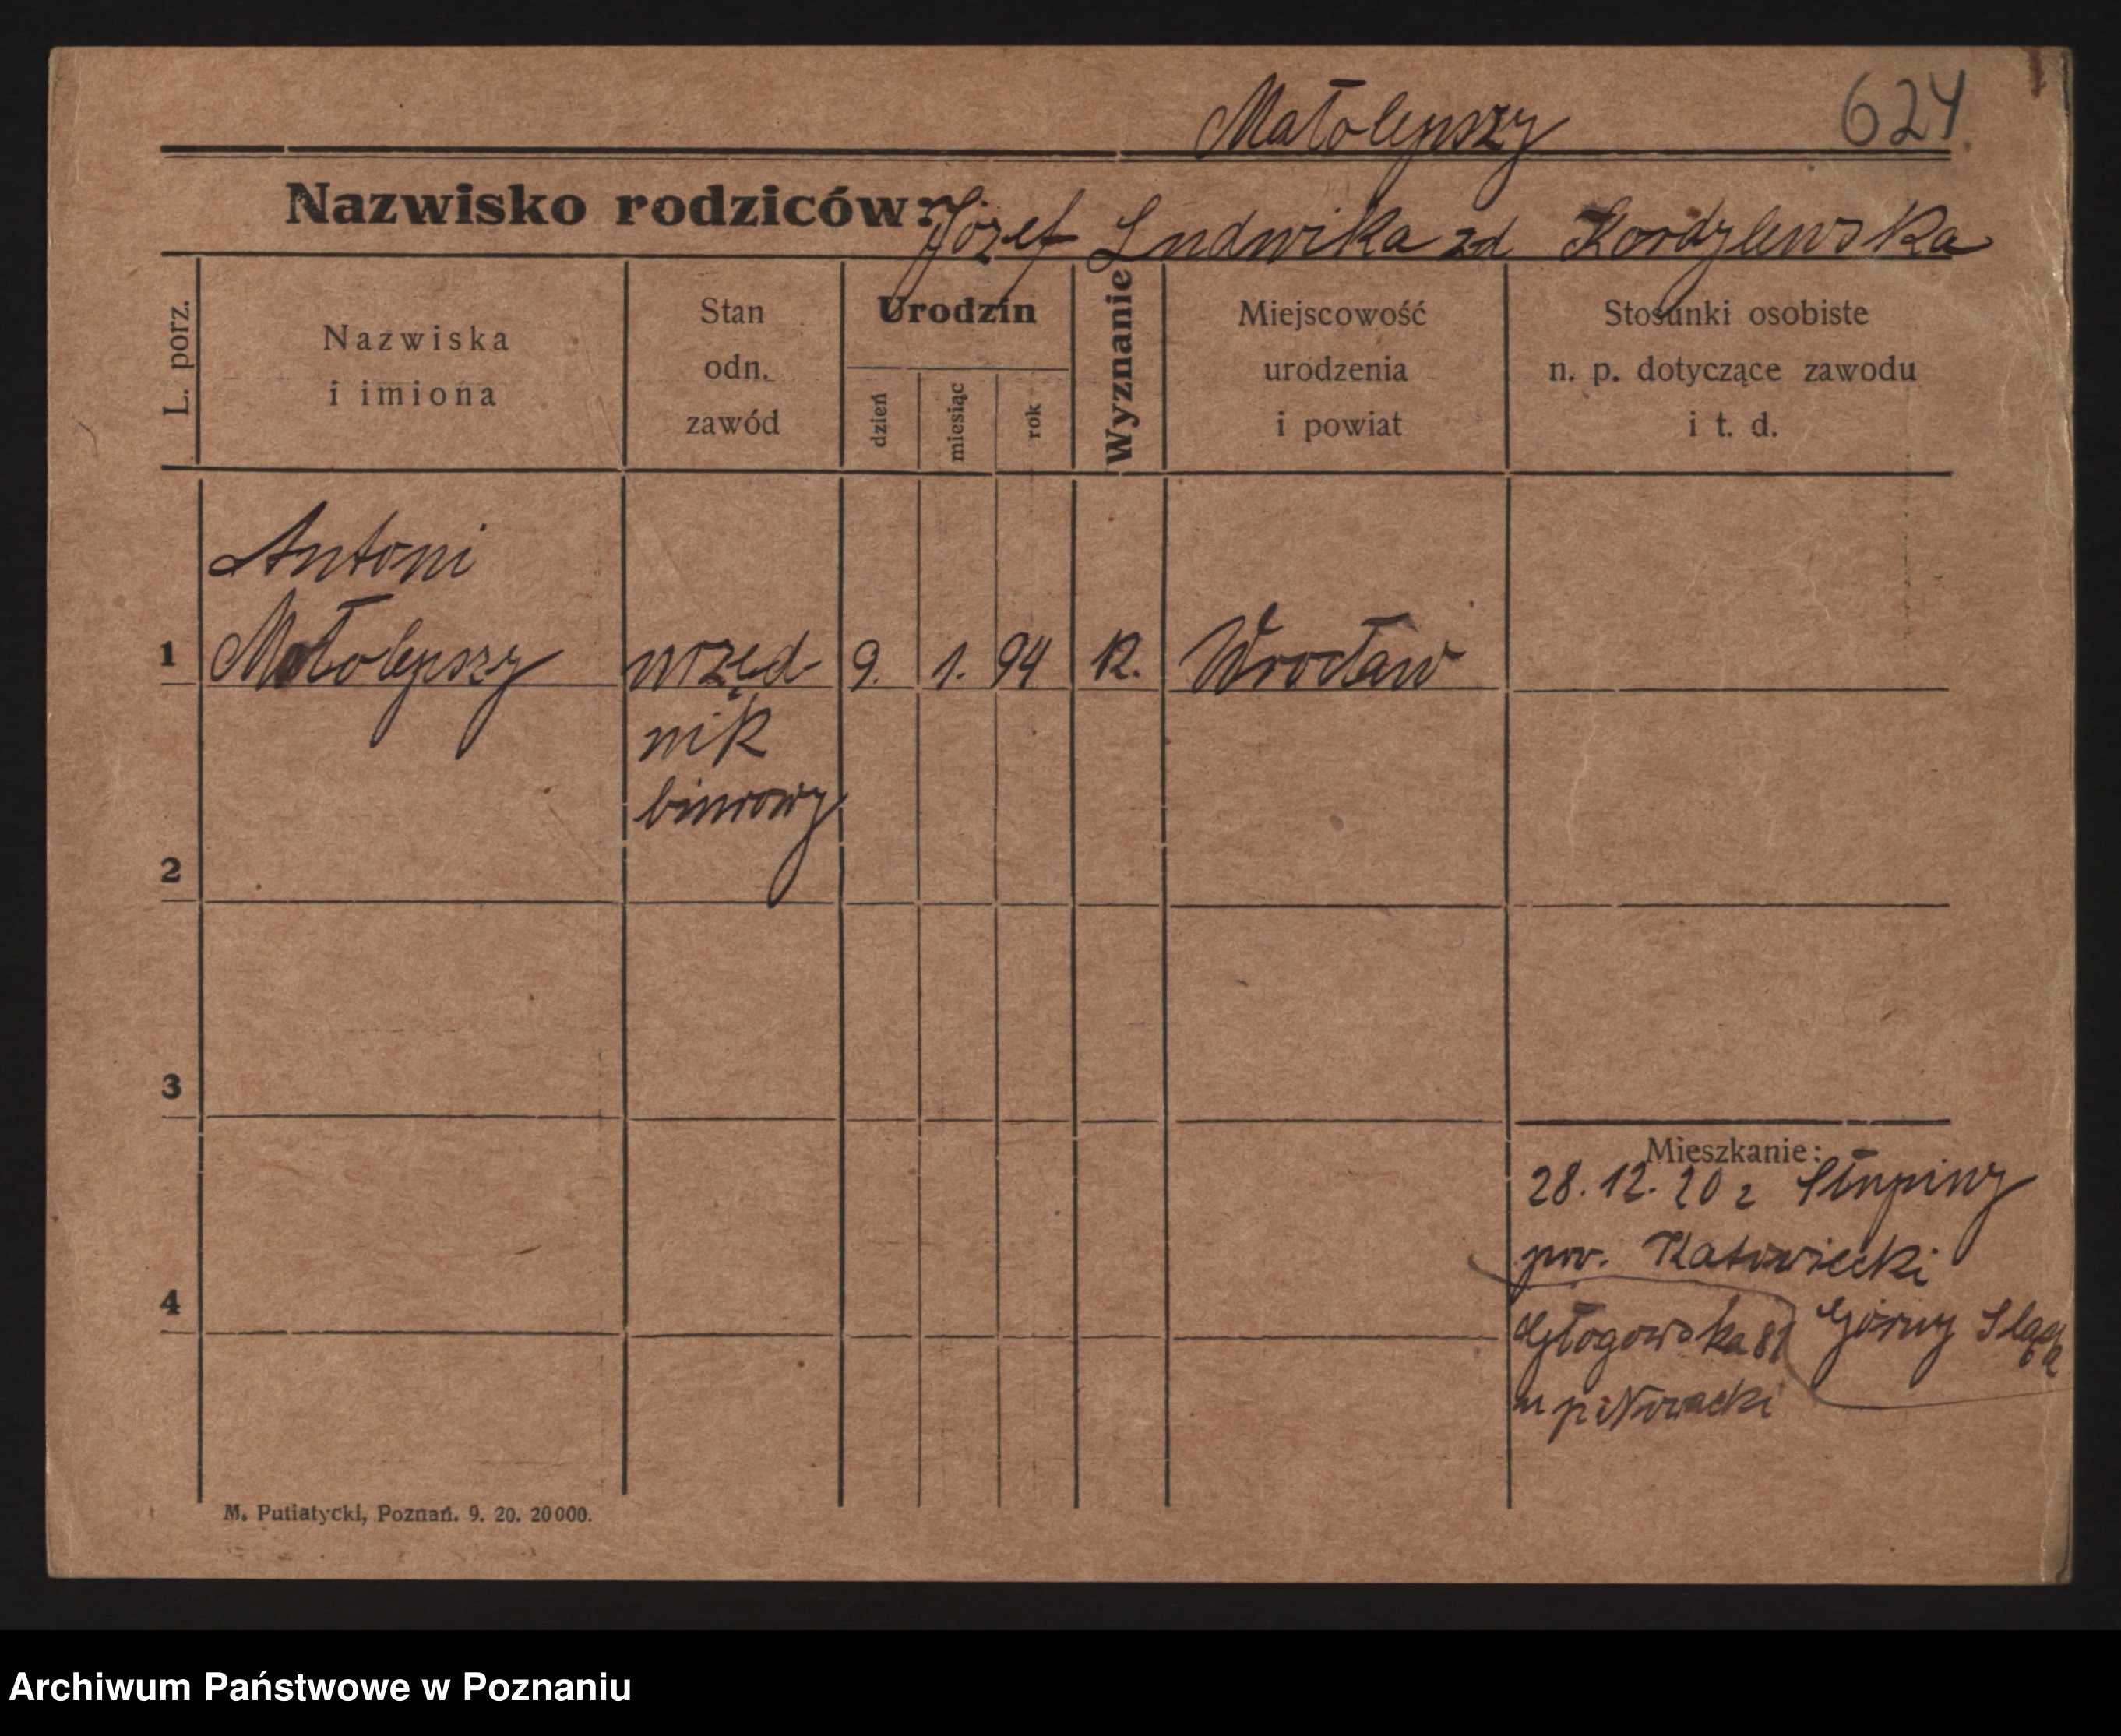 Małolepszy 624
Nazwisko rodziców: Józef Ludwika zd Kordylewska
L. porz.
Nazwiska
i imiona
Stan
odn.
zawód
Urodzin
dzień
miesiąc
rok
Wyznanie
Miejscowość
urodzenia
i powiat
Stosunki osobiste
n. p. dotyczące zawodu
i t. d.
Antoni
1 Małolepszy urzęd 9. 1. 94 K. Wrocław
nik
biurowy
2
3
4
Mieszkanie:
28. 12. 20 z Słupiny
pow. Katowicki
Głogowska 81 Górny Śląsk
u p Nowacki
M. Putiatycki, Poznań. 9. 20. 20000.
Archiwum Państwowe w Poznaniu